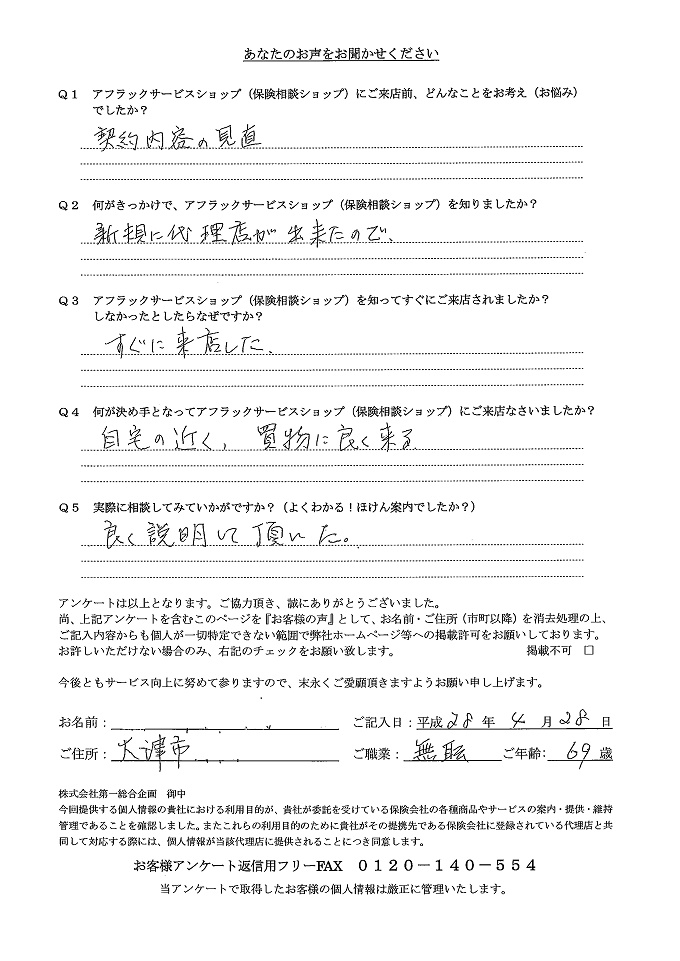 あなたのお声をお聞かせください
Q1 アフラックサービスショップ（保険相談ショップ）にご来店前、どんなことをお考え（お悩み）
でしたか？
契約内容の見直
Q2 何がきっかけで、アフラックサービスショップ（保険相談ショップ）を知りましたか？
新規に代理店が出来たので、
Q3 アフラックサービスショップ（保険相談ショップ）を知ってすぐにご来店されましたか？
しなかったとしたらなぜですか？
すぐに来店した、
Q4 何が決め手となってアフラックサービスショップ（保険相談ショップ）にご来店なさいましたか？
自宅の近く、買物に良く来る
Q5 実際に相談してみていかがですか？（よくわかる！ほけん案内でしたか？）
良く説明して頂いた。
アンケートは以上となります。ご協力頂き、誠にありがとうございました。
尚、上記アンケートを含むこのページを『お客様の声』として、お名前・ご住所（市町以降）を消去処理の上、
ご記入内容からも個人が一切特定できない範囲で弊社ホームページ等への掲載許可をお願いしております。
お許しいただけない場合のみ、右記のチェックをお願い致します。 掲載不可 □
今後ともサービス向上に努めて参りますので、末永くご愛顧頂きますようお願い申し上げます。
お名前： ご記入日：平成 28 年 4 月 28 日
ご住所：大津市 ご職業：無職 ご年齢：69 歳
株式会社第一総合企画 御中
今回提供する個人情報の貴社における利用目的が、貴社が委託を受けている保険会社の各種商品やサービスの案内・提供・維持
管理であることを確認しました。またこれらの利用目的のために貴社がその提携先である保険会社に登録されている代理店と共
同して対応する際には、個人情報が当該代理店に提供されることにつき同意します。
お客様アンケート返信用フリーFAX 0120－140－554
当アンケートで取得したお客様の個人情報は厳正に管理いたします。